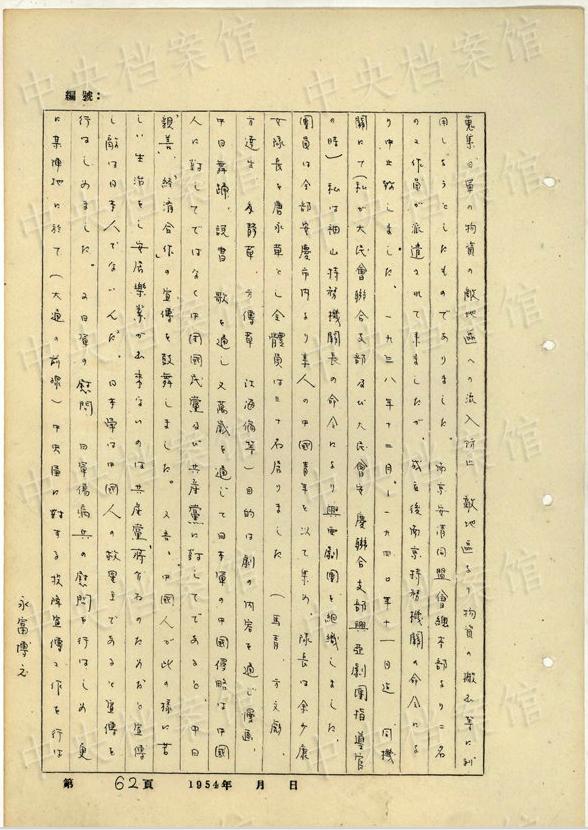 編號：
蒐集日軍の物資の敵地區への流入防止 敵地區より物資の搬出等に利
用しようとしたものでありました。南京安清同盟會總本部より二名
の工作員が派遣されて来ましたが、成立後南京特務機關の命令によ
り中止致しました。一九三八年十二月～一九四〇年十一月迄 同機
關にて（私が大民會聯合支部及び大民會安慶聯合支部興亞劇團指導官
の時）私は細山特務機關長の命令により興亜劇團を組織しました。
團員は全部安慶市内より某人の中國青年を以て集め、隊長は余少康
女隊長を唐永革とし全體員は三十名居りました（馬青、方文蔚、
方達生 金静草、方傳草 江涵儒等）目的は劇の内容を通じ漫画、
中日舞踊、説書 歌を通し又萬歳を通じて日本軍の中國侵略は中國
人に対してではなく中国國民黨及び共産黨に対してであると、中日
親善、経済合作の宣傳を鼓舞しました。又吾々中國人が此の様に苦
しい生活をし安居樂業が出来ないのは共産黨所有るのためだと宣傳
し敵は日本人でないんだ。日本軍は中國人の救星まであると宣傳を
行はしめました。又日軍の慰問 日軍傷病兵の慰問を行はしめ 更
に某陣地に於て（大通の前環）中央區に対する投降宣傳工作を行は
永富博之
第 62頁 1954年 月 日
中央档案馆